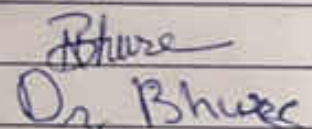 Bhure
Dr Bhure